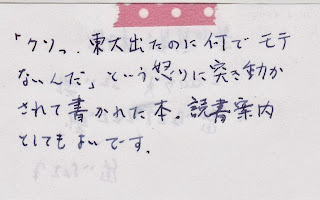 「クソっ、東大出たのに何でモテ
ないんだ」という怒りに突き動か
されて書かれた本。読書案内
としてもよいです。